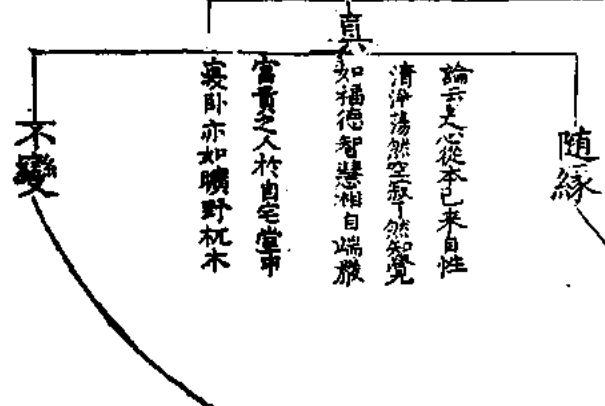 真
随緣
論云夫心從本已来自性
清浄蕩然空寂了然知覺
如福德智慧相自端嚴
富貴之人於自宅堂中
寝卧亦如曠野杌木
不變